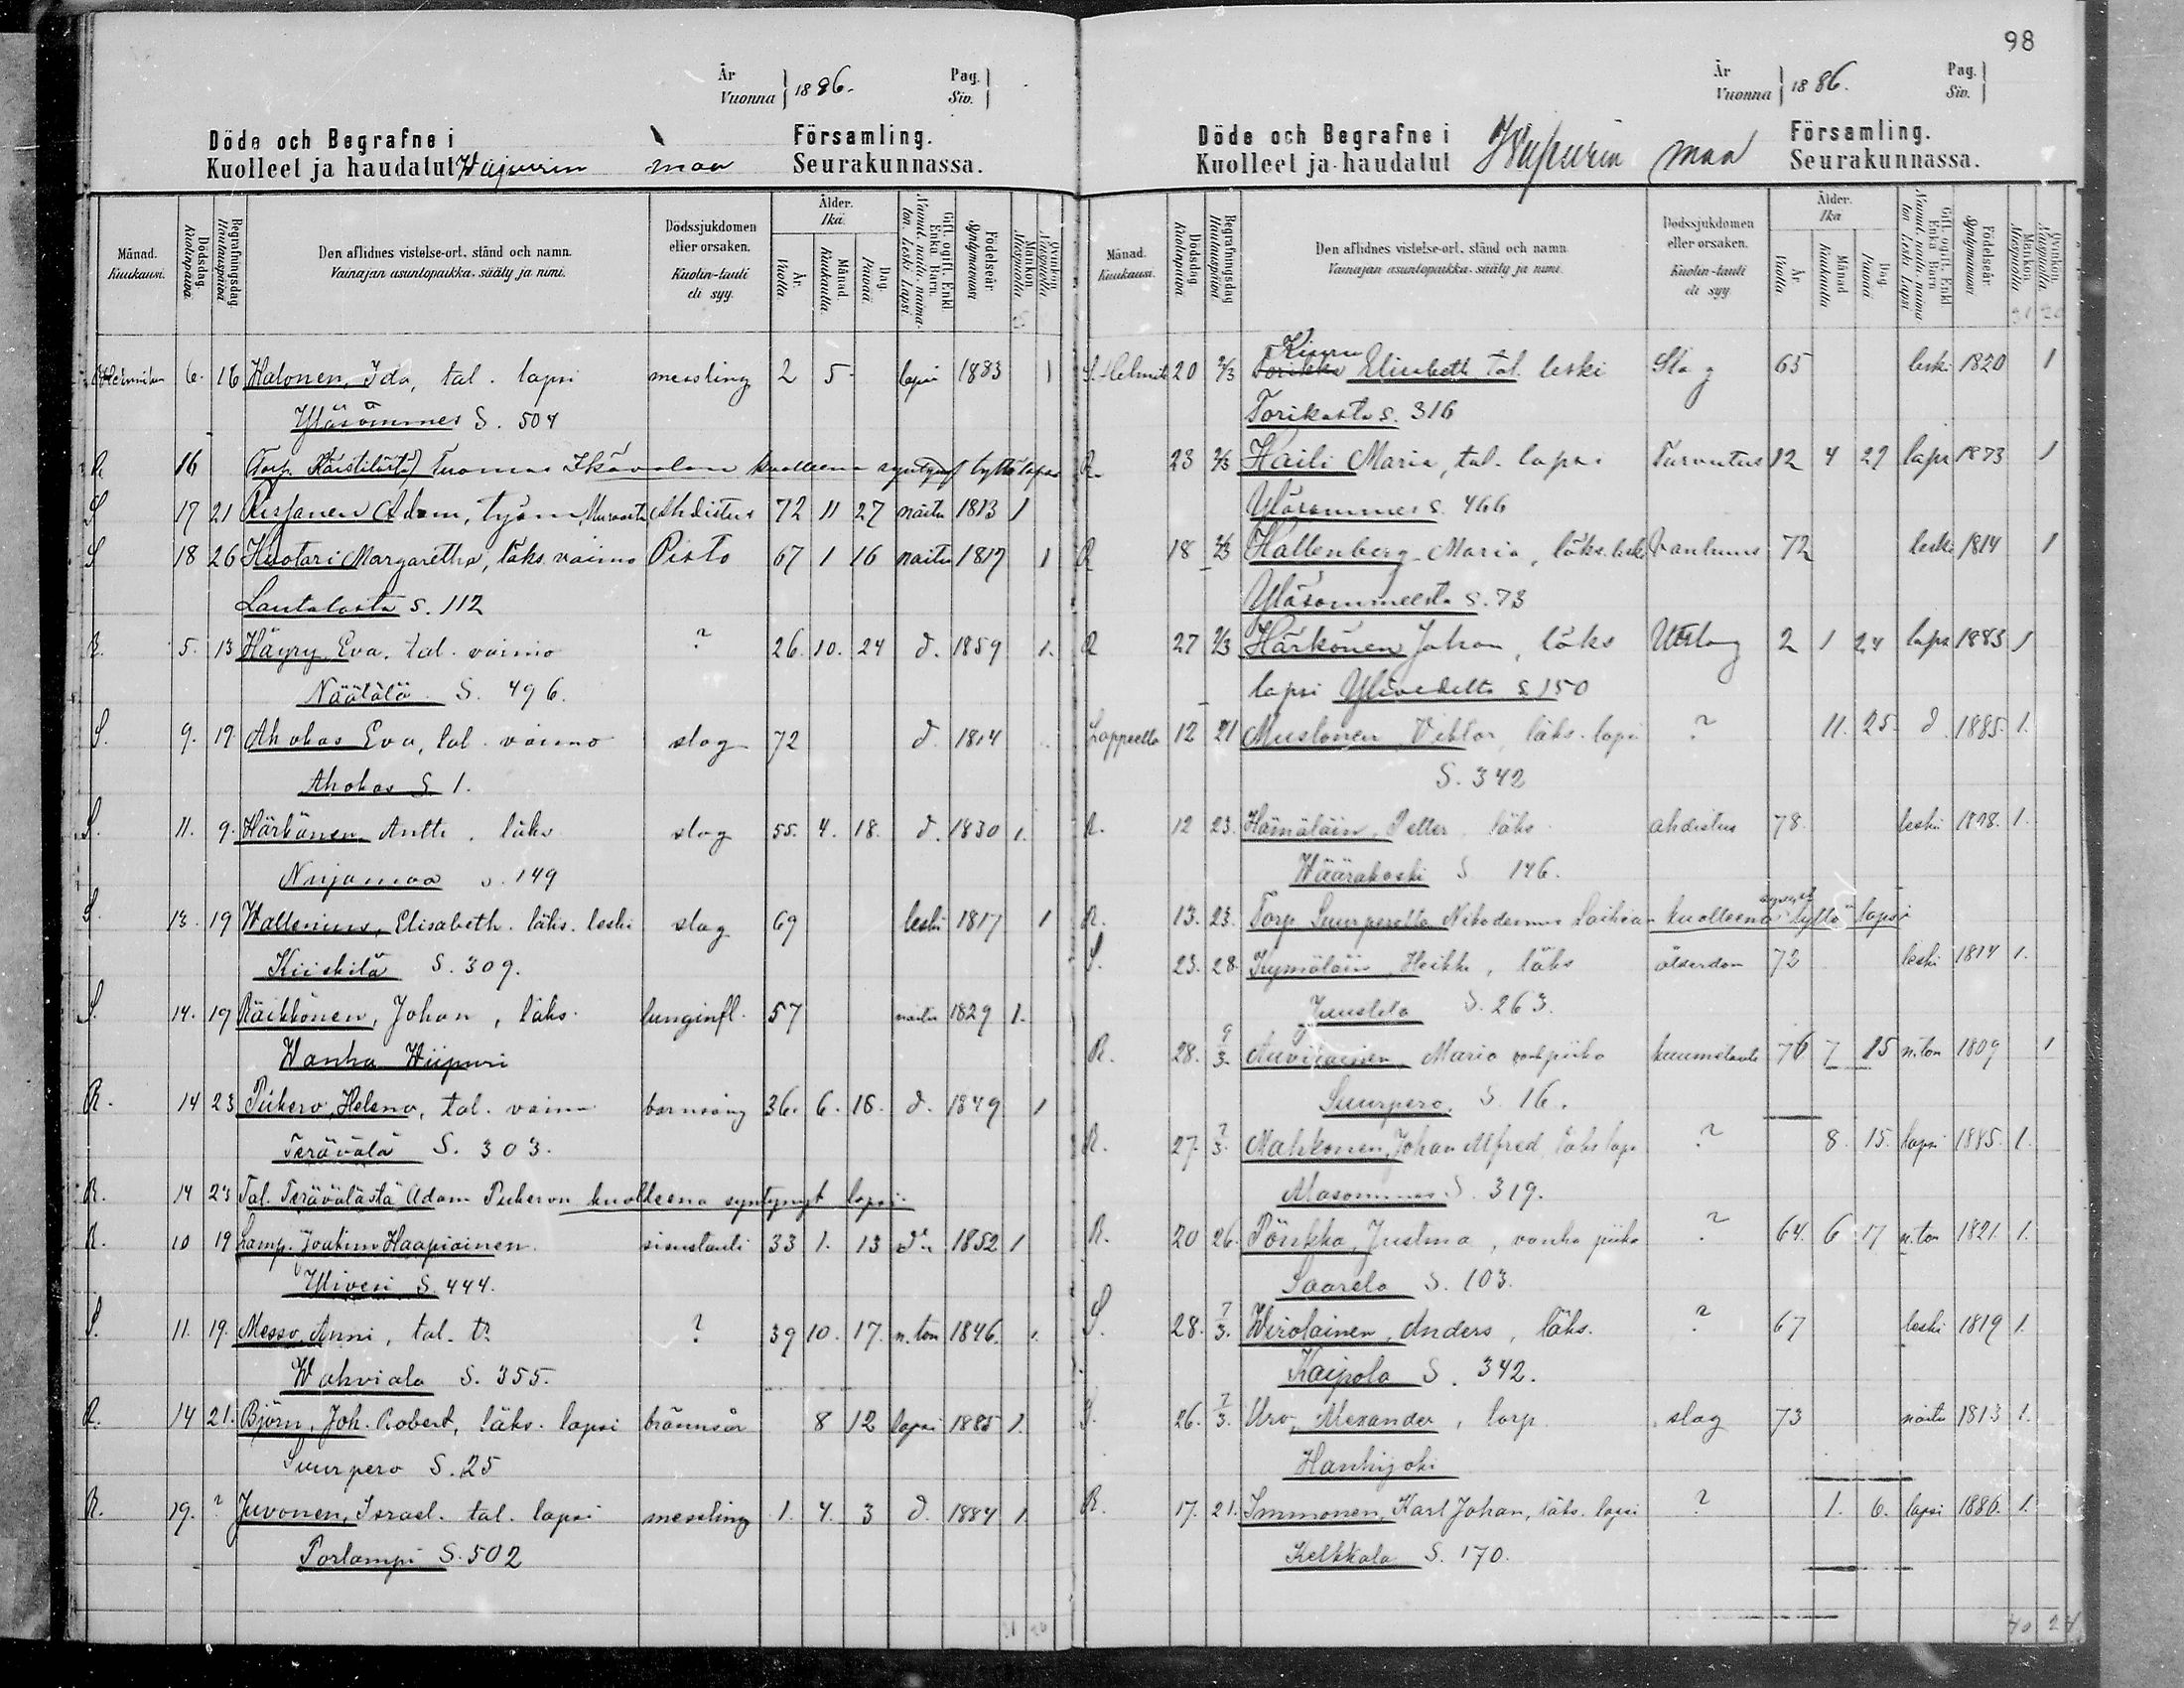 År
Vuonna } 1886.
Pag.
Siv.
Döde och Begrafne i
Församling.
Kuolleet ja haudatut Wiipurin maa Seurakunnassa.
Månad. Kuukausi.
Dödsdag. Kuolinpäivä.
Begrafningsdag. Hautauspäivä
Den aflidnes vistelse-ort, stånd och namn.
Vainajan asuntopaikka, sääty ja nimi.
Dödssjukdomen eller orsaken.
Kuolin-tauti eli syy.
Ålder. Ikä.
År Vuotta
Månad Kuukautta
Dag. Päivää
Gift, ogift, Enkl. Enka Barn.
Nainut, naitu, naimaton, Leski, Lapsi
Födelseår. Syntymävuosi
Mankön. Miespuolia
Qvinkön. Vaispuolia
6. 16 Halonen, Ida, tal. lapsi messling 2 5 lapsi 1883 1
Yläsommes S. 504
R 16 Torp. Tuomas kuolleena tyttölapsi
S 17 21 Adam, työm, Ahdistus 72 11 27 naitu 1813 1
S 18 26 Huotari Margaretha, läks vaimo Pisto 67 1 16 naitu 1819 1
Lautalasta S. 112
R. 5. 13 Häyry Eva, tal. vaimo ? 26. 10. 24 d. 1859 1.
Näätälä S. 496.
S. 9. 19 Ahokas Eva, tal. vaimo slag 72 d. 1814
Ahokas S. 1.
S. 11. 9. Härkönen Antti, läks slag 55. 4. 18. d. 1830 1.
Nuijamaa S. 149
S. 13. 19 Wallenius, Elisabeth. läks. leski slag 69 leski 1817 1
Kiiskilä S. 309.
S. 14. 19 Räikkönen, Johan, läks. lunginfl. 57 naitu 1829 1.
Wanha Wiipuri
R. 14 23 Pukero, Helena, tal. vaimo barnsäng 36. 6. 18. d. 1849 1
Terävälä S. 303.
R. 14 23 Tal. Terävälästä Adam Pukeron kuolleena syntynyt lapsi.
R. 10 19 Lamp. Joakim Haapiainen sisustauti 33 1. 13 d:o 1852 1
Ylivesi S. 444.
S. 11. 19. Messo, Anni, tal. t:r ? 39 10. 17. n. ton 1846. 1.
Wahviala S. 355.
R. 14 21. Björn, Joh. Robert, läks. lapsi brännsår 8 12 lapsi 1885 1.
Suurpero S. 25
R. 19. ? Juvonen, Israel. tal. lapsi messling 1. 4. 3 d. 1884 1.
Porlampi S. 502
31 20
98
År
Vuonna } 1886.
Pag.
Siv.
Döde och Begrafne i
Församling.
Kuolleet ja haudatut Wiipurin maa Seurakunnassa.
Månad. Kuukausi.
Dödsdag. Kuolinpäivä
Begrafningsdag. Hautauspäivä
Den aflidnes vistelse-ort, stånd och namn.
Vainajan asuntopaikka, sääty ja nimi.
Dödssjukdomen eller orsaken.
Kuolin-tauti eli syy.
Ålder. Ikä
År Vuotta
Månad Kuukautta
Dag. Päivää
Gift, ogift, Enkl. Enka Barn
Nainut, naitu, naimaton, Leski, Lapsi
Födelseår. Syntymävuosi
Mankön. Miespuolia
Qvinkön. Vaispuolia
31 20
Kiuru
S. Helmik 20 2/3 Torikka Elisabeth tal. leski Slag 65 leski 1820 1
Torikasta S. 316
R. 23 2/3 Haili Maria, tal. lapsi Turvutus 12 4 27 laps 1873 1
Yläsommes S. 466
R 18 Hallenberg Maria, läks. leski vanhuus 72 leski 1814 1
Yläsommeesta S. 73
R 27 2/3 Härkönen Johan, läks Utslag 2 1 24 laps 1883 1
lapsi Ylivedeltä S. 150
Lappeella 12 21 Mustonen Viktor, läks. lapsi ? 11. 25. d. 1885. 1.
S. 342
R. 12 23. Hämäläin, Petter läks ahdistus 78. leski 1808. 1.
Wäärakoski S 146.
R. 13. 23. Torp Suurperolta Nikodemus Laihian kuolleena tyttö lapsi
S. 23. 28. Kymäläin, Heikki, läks ålderdom 72 leski 1814 1.
Juustila S. 263.
R. 28. 9/3. Auvinainen Maria vanhpiika kuumetauti 76 7 15 n:ton 1809 1
Suurpero, S. 16.
R. 27. 7/3. Mahkonen, Johan Alfred, läks laps ? 8. 15. lapsi 1885. 1.
Alasommes S. 319.
R. 20 26. Pönkkä, Justina, vanha piika ? 64. 6 17 n. ton 1821. 1.
Saarela S. 103.
S. 28. 7/3. Wirolainen, Anders, läks. ? 67 leski 1819 1.
Kaipola S. 342.
S. 26. 7/3. Uro, Alexander, torp. slag 73 naitu 1813 1.
Hanhijoki
R. 17. 21. Immonen, Karl Johan, läks. lapsi ? 1. 6. lapsi 1886. 1.
Kelkkala S. 170.
40 24